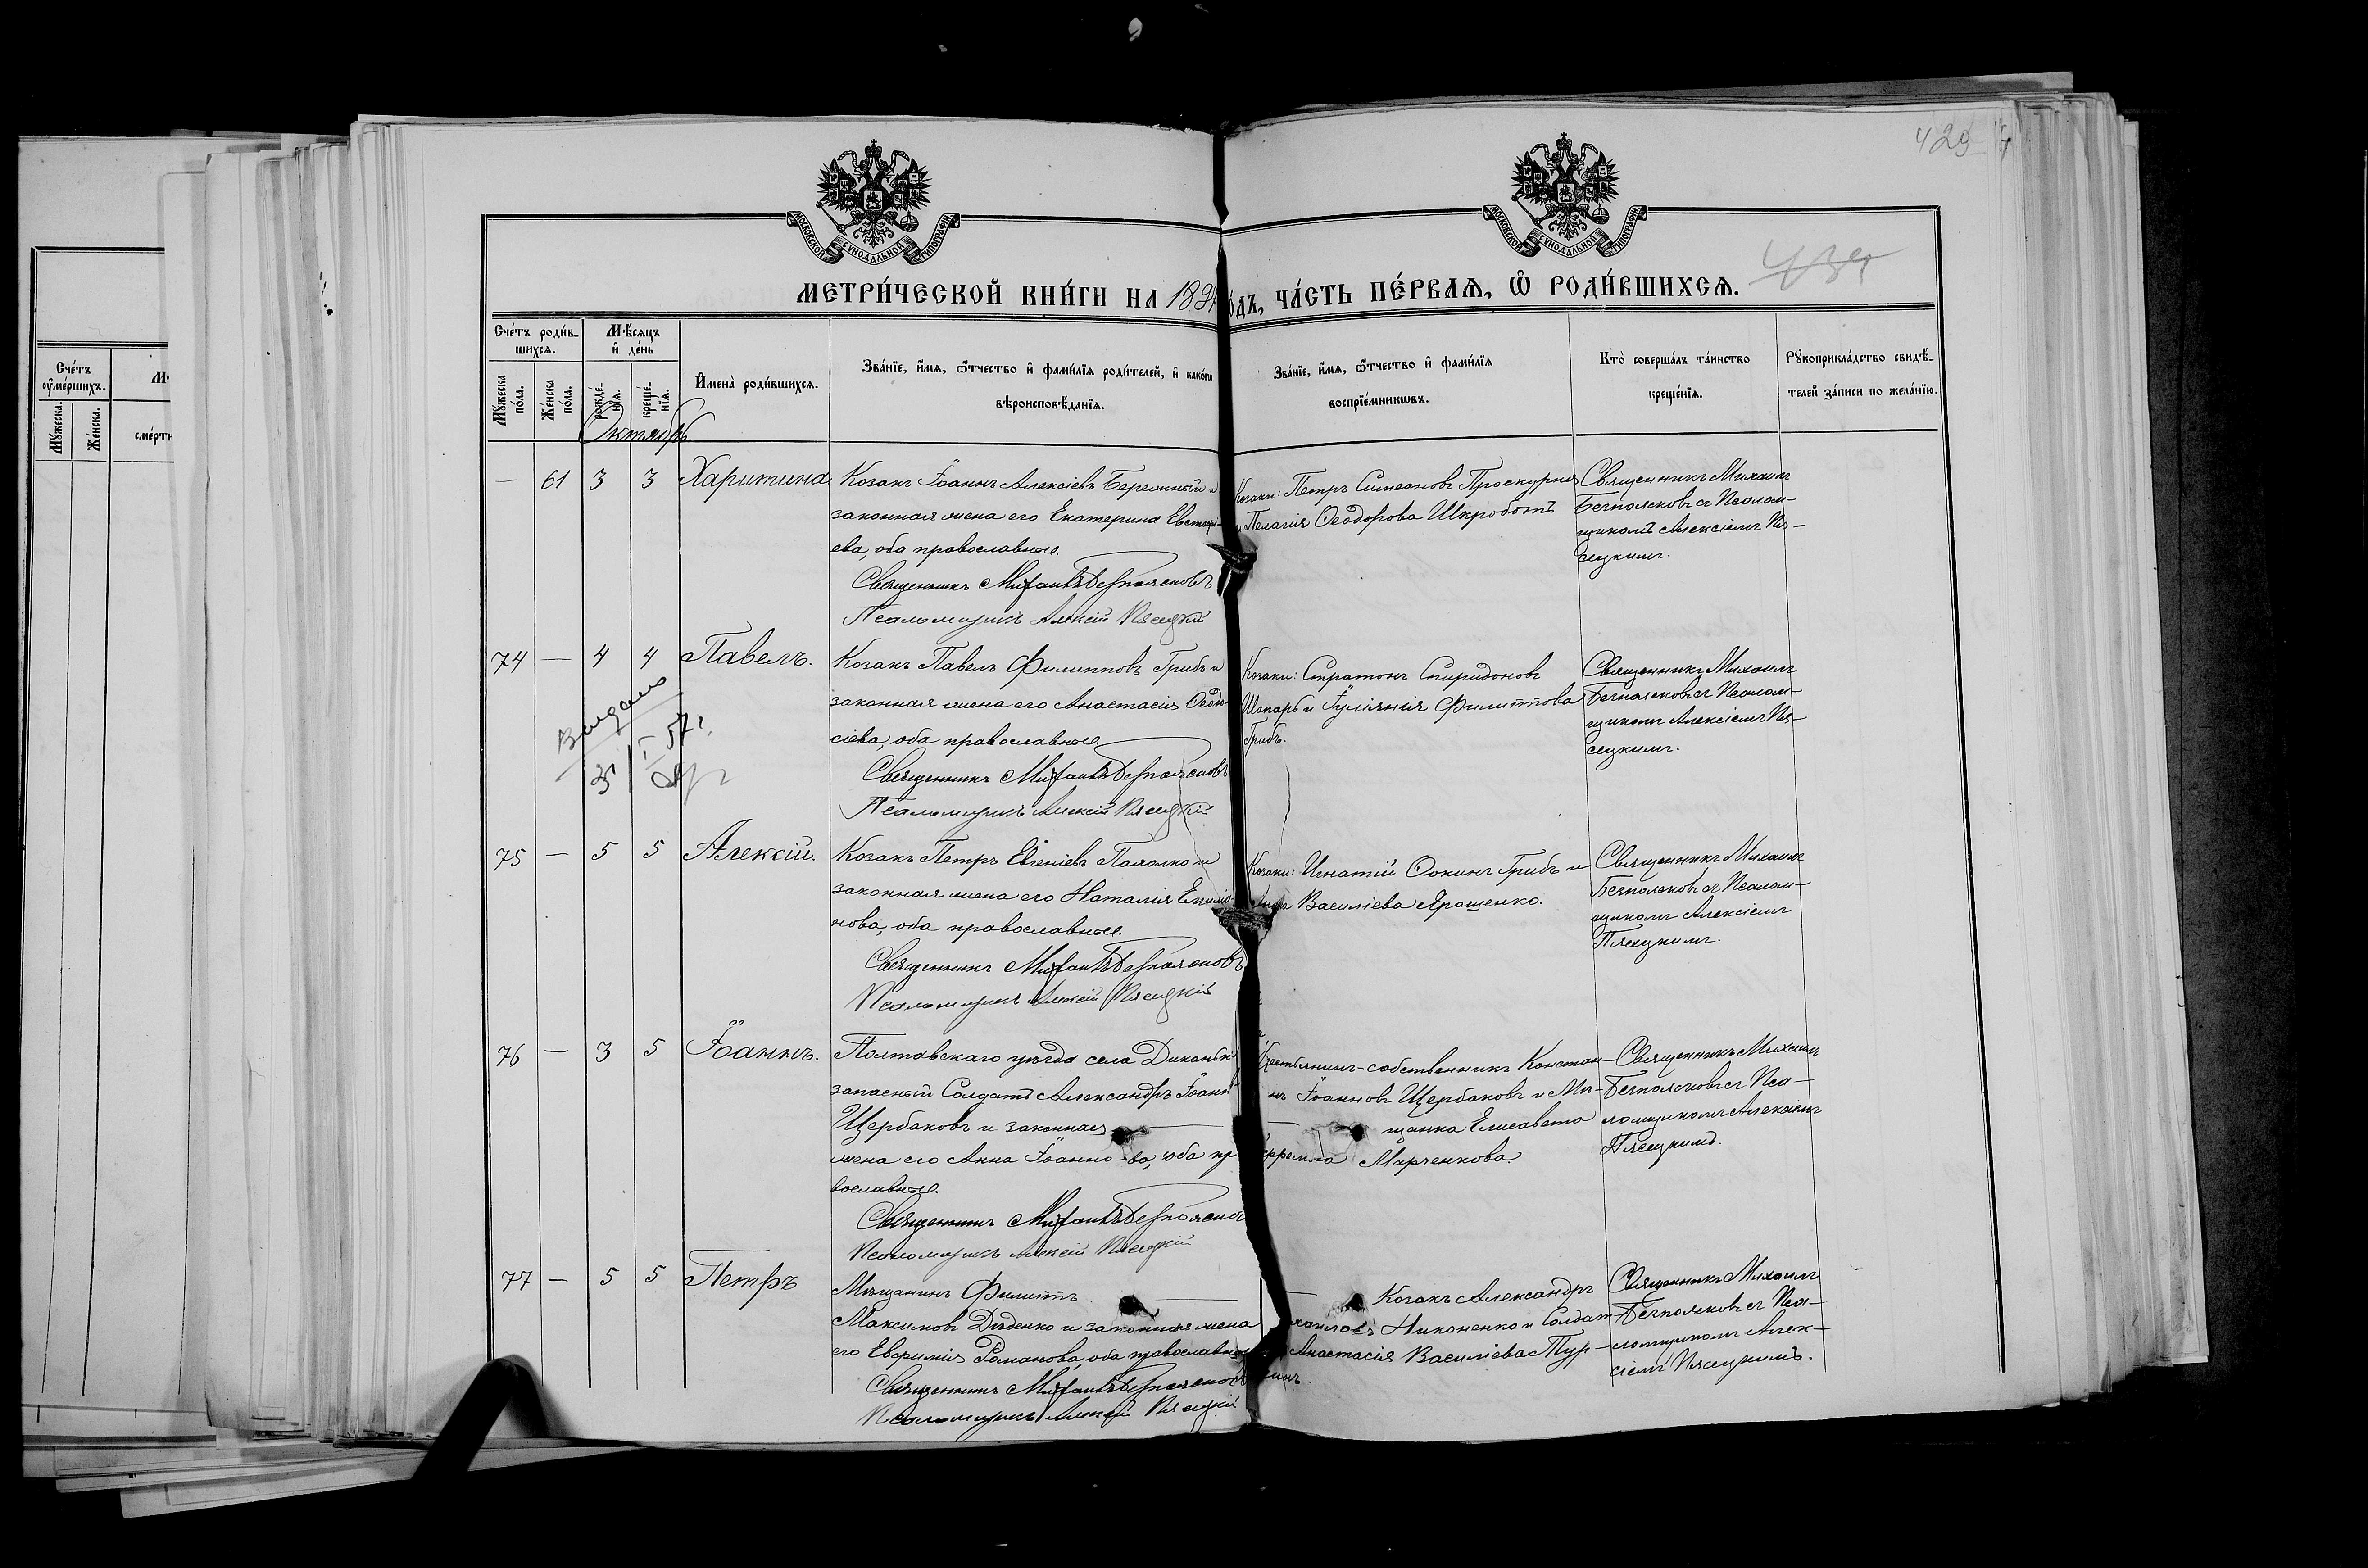 429
439
МОСКОВСКОЙ СѴНОДАЛЬНОЙ ТИПОГРАФІИ
МОСКОВСКОЙ СѴНОДАЛЬНОЙ ТИПОГРАФІИ
МЕТРИ́ЧЕСКОЙ КНИ́ГИ НА 189
ЧА́СТЬ ПЕ́РВАѦ, Ѽ РОДИ́ВШИХСѦ.
Сче́тъ
оу҆ме́ршихъ.
Мꙋ́жеска.
Же́нска.
Сче́тъ роди́в-
шихсѧ.
Мꙋ́жеска
по́ла.
Же́нска
по́ла.
Мѣ́сѧцъ
и҆ де́нь
рожде́-
нїѧ.
креще́-
нїѧ.
И҆мена̀ роди́вшихсѧ.
Зва́нїе, и҆́мѧ, ѻ҆́тчество и҆ фами́лїѧ роди́телей, и҆
вѣроисповѣ́данїѧ.
Зва́нїе, и҆́мѧ, ѻ҆́тчество и҆ фами́лїѧ
воспрїе́мникѡвъ.
Кто̀ соверша́лъ та́инство
креще́нїѧ.
Рꙋкоприкла́дство свидѣ́-
телей за́писи по жела́нїю.
Октябрь
— 61 3 3 Харитина
Козакъ Іоаннъ Алексіевъ Бережный и
законная жена его Екатерина
ева, оба православные.
Священникъ Михаилъ Безпоясновъ
Псаломщикъ Алексій Пясецкій
Козаки: Петръ Симеоновъ Проскурня
и Пелагія Ѳеодорова Шкроботъ
Священникъ Михаилъ
Безпоясновъ съ Псалом-
щикомъ Алексіемъ Пя-
сецкимъ.
74 — 4 4 Павелъ.
Выдано
57 г.
Козакъ Павелъ Филипповъ Грибъ и
законная жена его Анастасія
сіева, оба православные
Священникъ Михаилъ Безпоясновъ
Псаломщикъ Алексій Пясецкій
Козаки: Стратонъ Спиридоновъ
Шапарь и Іуліанія Филиппова
Грибъ.
Священникъ Михаилъ
Безпоясновъ съ Псалом-
щикомъ Алексіемъ Пя-
сецкимъ.
75 — 5 5 Алексій.
Козакъ Петръ Евгеніевъ Пахалко и
законная жена его Наталія
нова, оба православные.
Священникъ Михаилъ Безпоясновъ
Псаломщикъ Алексій Пясецкій
Козаки: Игнатій Ѳокинъ Грибъ и
Василіева Ярошенко.
Священникъ Михаилъ
Безпоясновъ съ Псалом-
щикомъ Алексіемъ
Пясецкимъ.
76 — 3 5 Іоаннъ.
Полтавскаго уѣзда села Диканьки
запасный Солдатъ Александръ Іоанн
Щербаковъ и законная
жена его Анна Іоанно-ва, оба пр
вославные.
Священникъ Михаилъ Безпоясновъ
Псаломщикъ Алексій Пясецкій
Крестьянинъ-собственникъ Констан-
нъ Іоанновъ Щербаковъ и Мѣ-
щанка Елисавета
Марченкова.
Священникъ Михаилъ
Безпоясновъ съ Пса-
ломщикомъ Алексіемъ
Пясецкимъ.
77 — 5 5 Петръ
Мѣщанинъ Филиппъ
Максимовъ Дѣденко и законная жена
его Евфимія Романова, оба православные
Священникъ Михаилъ Безпоясновъ
Псаломщикъ Алексій Пясецкій
Козакъ Александръ
Никоненко и Солдат
Анастасія Василіева Тур-
Священникъ Михаилъ
Безпоясновъ съ Пса-
ломщикомъ Алек-
сіемъ Пясецкимъ.